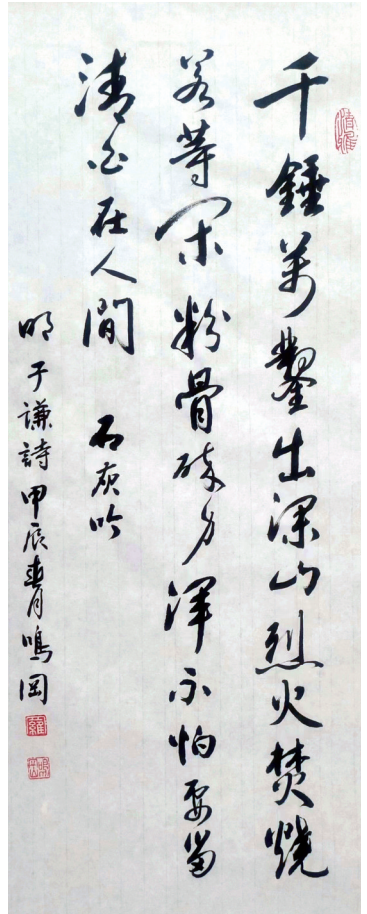 千錘萬鑿出深山烈火焚燒
若等閑粉骨碎身渾不怕要留
清白在人間 石灰吟
明于謙詩甲辰春月鳴岡
羅